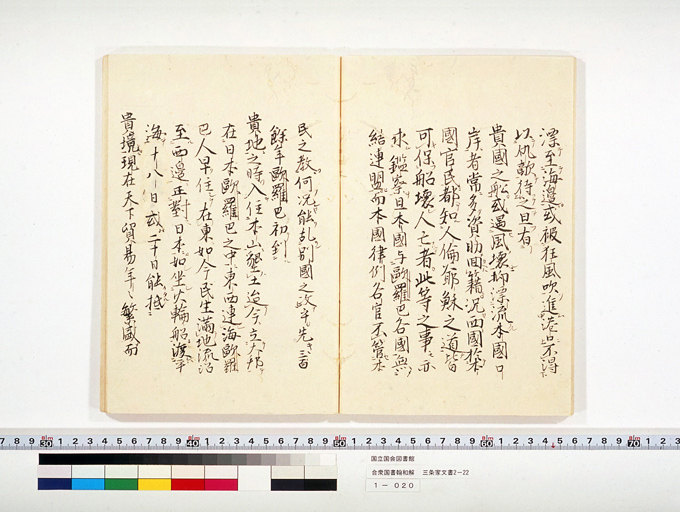 漂至海邊或被狂風吹進港口不得
以仇歒待之且有
貴國之船或遇風壞抑漂流本國口
岸者常多資助回籍況西國於本
國官民都知人倫耶穌之道皆
可保船壞人亡者此等之事亦
求鑑察且本國与歐羅巴各國無
結連盟而本國律例各官不管本
民之教何況能乱別國之政乎先三百
餘年歐羅巴初到
貴地之時入住本山墾至迄今立大邦
在日本歐羅巴之中東西連海歐羅
巴人早住在東如今民生滿地流沿
至西邊正對日本如坐火輪船渡平
海十八日或二十日能抵
貴境現在天下貿易年〻繁盛而
国立国会図書館
合衆国書翰和解 三条家文書Z-22
1-020